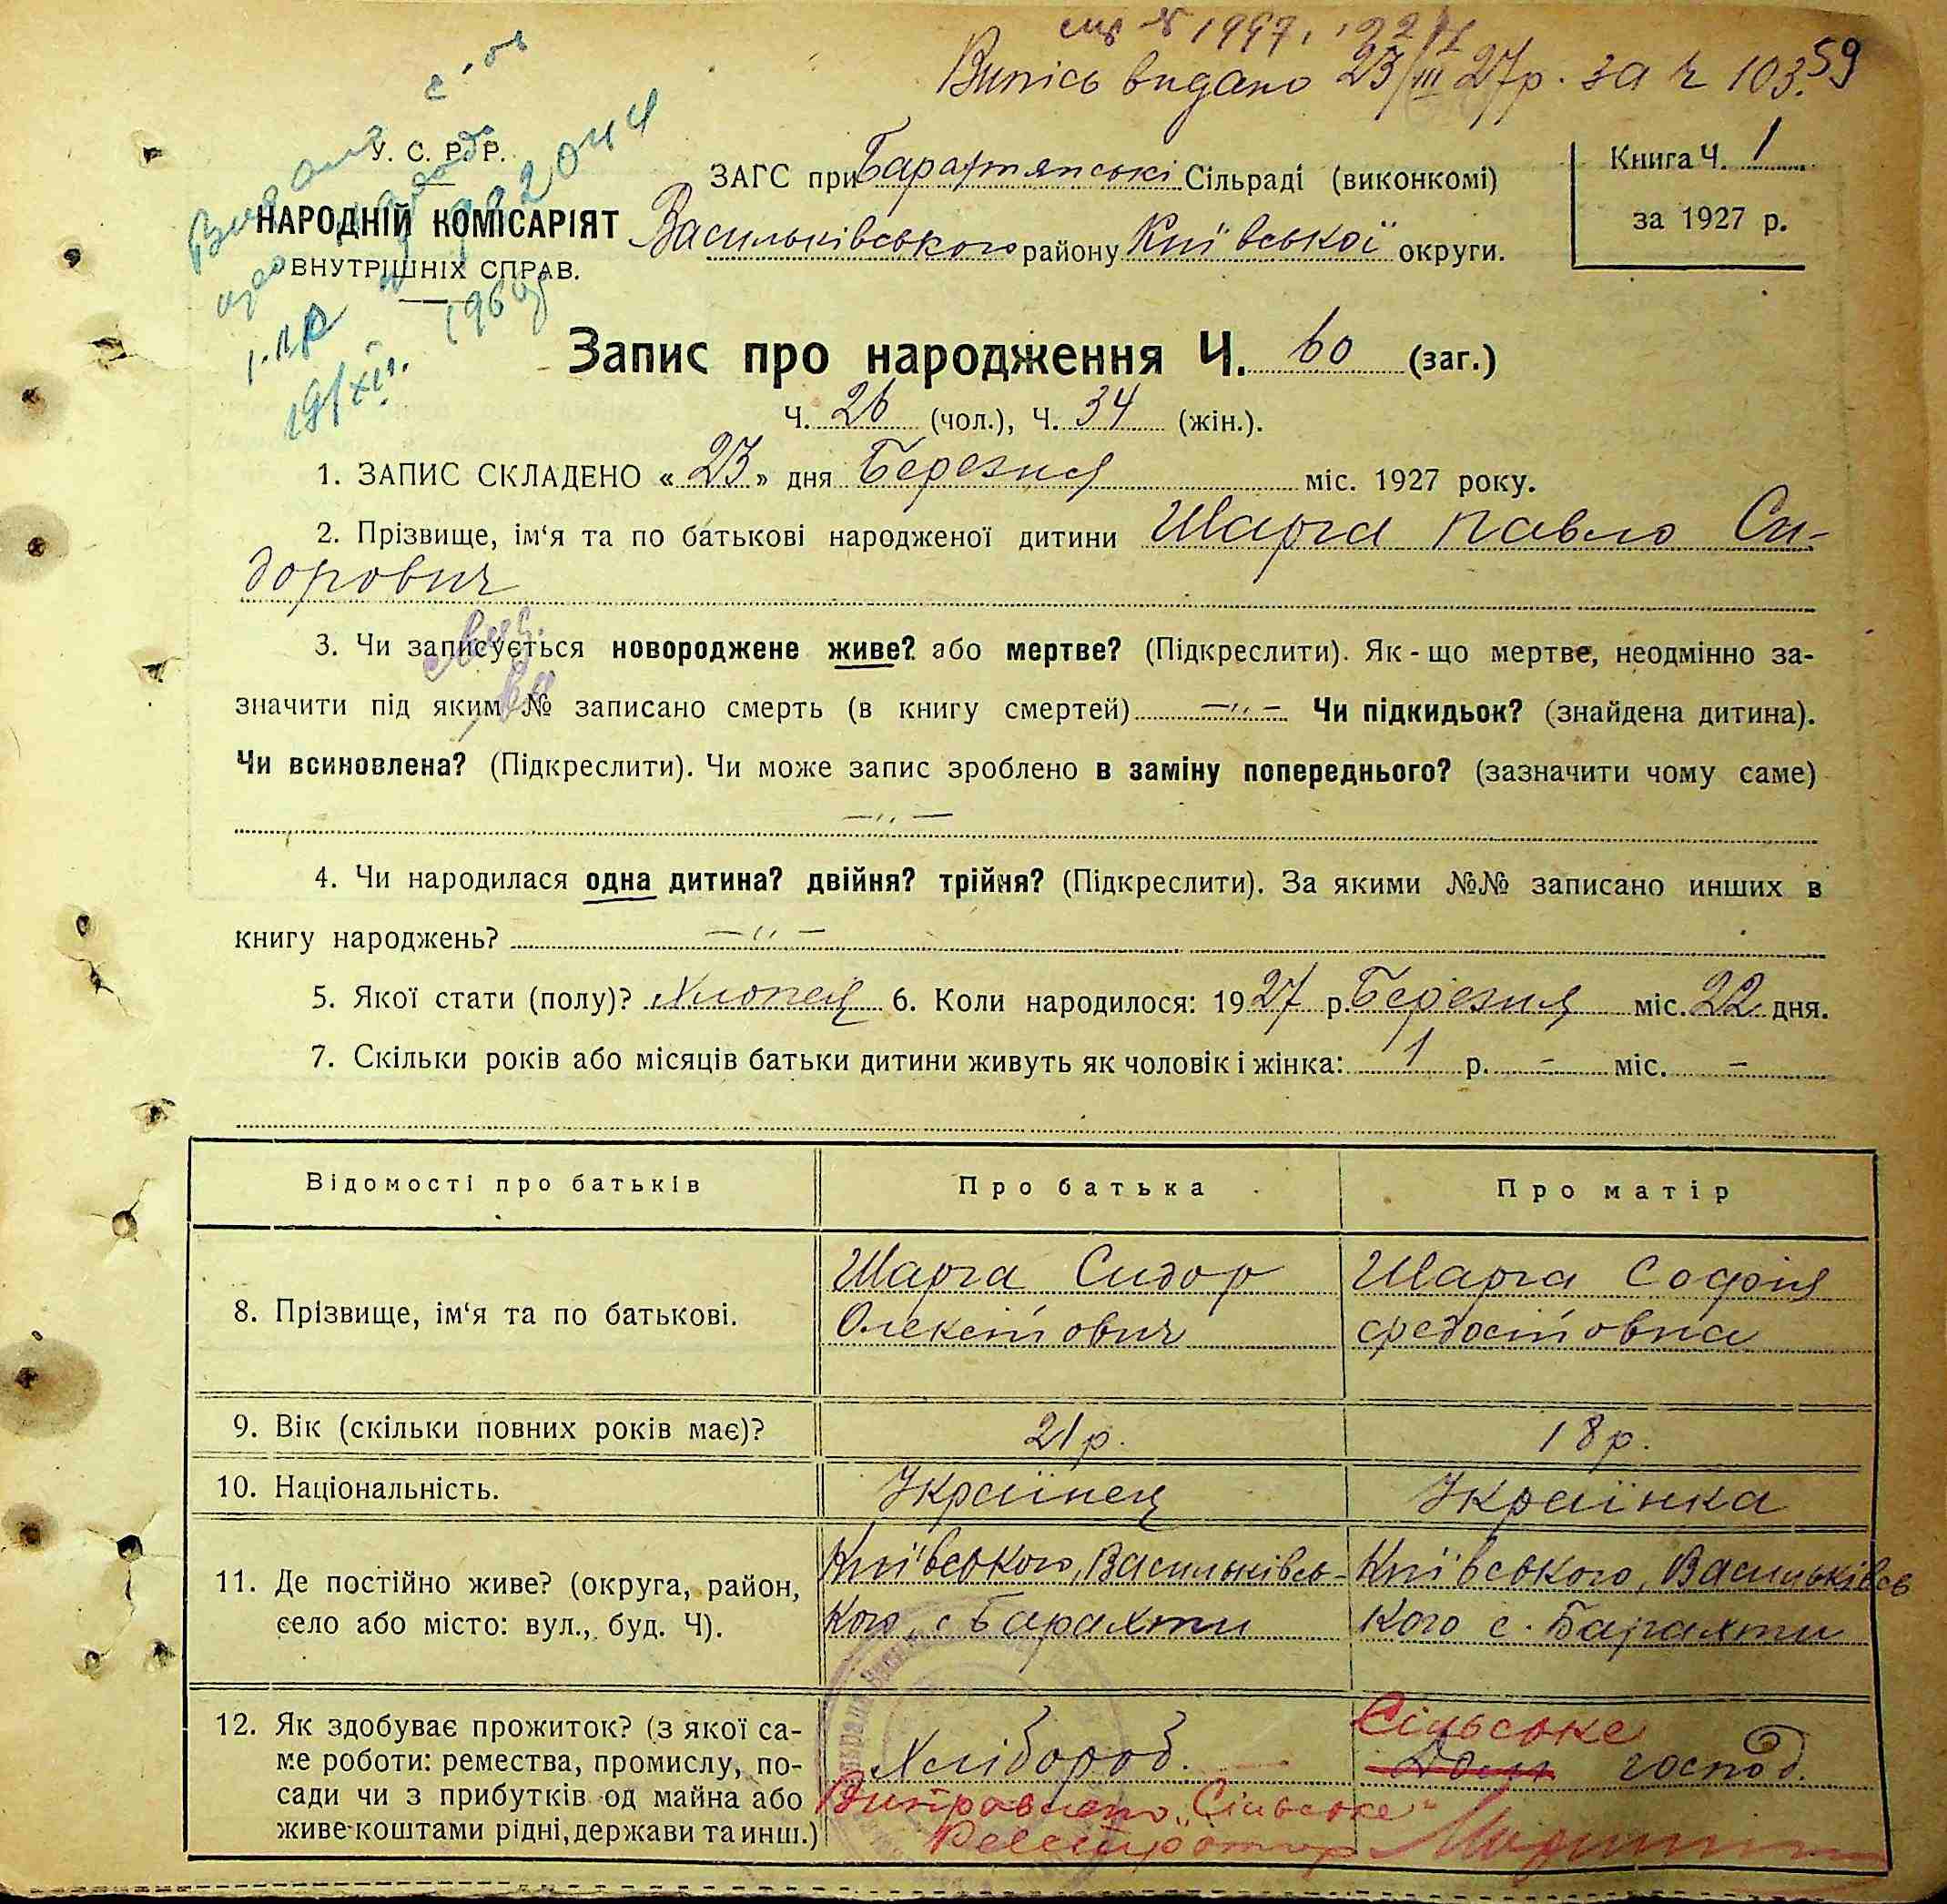 1997,
Випісь видано 23/III 27р. за ч 103. 59
У. С. Р. Р.
НАРОДНІЙ КОМІСАРІЯТ
ВНУТРІШНІХ СПРАВ.
19/XI. 1960
ЗАГС при Барахтянські Сільраді (виконкомі)
Васильківського району Київської округи.
Книга Ч. 1
за 1927 р.
Запис про народження Ч. 60 (заг.)
Ч. 26 (чол.), Ч. 34 (жін.).
1. ЗАПИС СКЛАДЕНО « 23 » дня Березня міс. 1927 року.
2. Прізвище, ім‘я та по батькові народженої дитини Шарга Павло Си-
дорович
3. Чи записується новороджене живе? або мертве? (Підкреслити). Як-що мертве, неодмінно за-
значити під яким № записано смерть (в книгу смертей) —„— Чи підкидьок? (знайдена дитина).
Чи всиновлена? (Підкреслити). Чи може запис зроблено в заміну попереднього? (зазначити чому саме)
—„—
4. Чи народилася одна дитина? двійня? трійня? (Підкреслити). За якими №№ записано инших в
книгу народжень? —„—
5. Якої стати (полу)? Хлопец 6. Коли народилося: 1927 р. Березня міс. 22 дня.
7. Скільки років або місяців батьки дитини живуть як чоловік і жінка: 1 р. – міс. –
Відомості про батьків Про батька Про матір
8. Прізвище, ім‘я та по батькові.
Шарга Сидор
Олексійович
Шарга Софія
Федосійовна
9. Вік (скільки повних років має)? 21 р. 18 р.
10. Національність. Українец Українка
11. Де постійно живе? (округа, район,
село або місто: вул., буд. Ч).
Київського, Васильківсь-
кого, с Барахти
Київського, Васильківсь
кого с. Барахти
12. Як здобуває прожиток? (з якої са-
ме роботи: ремества, промислу, по-
сади чи з прибутків од майна або
живе коштами рідні, держави та инш.)
Хлібороб.
Сільське
Дом. господ.
Виправлено „Сільське“
Реєстратор